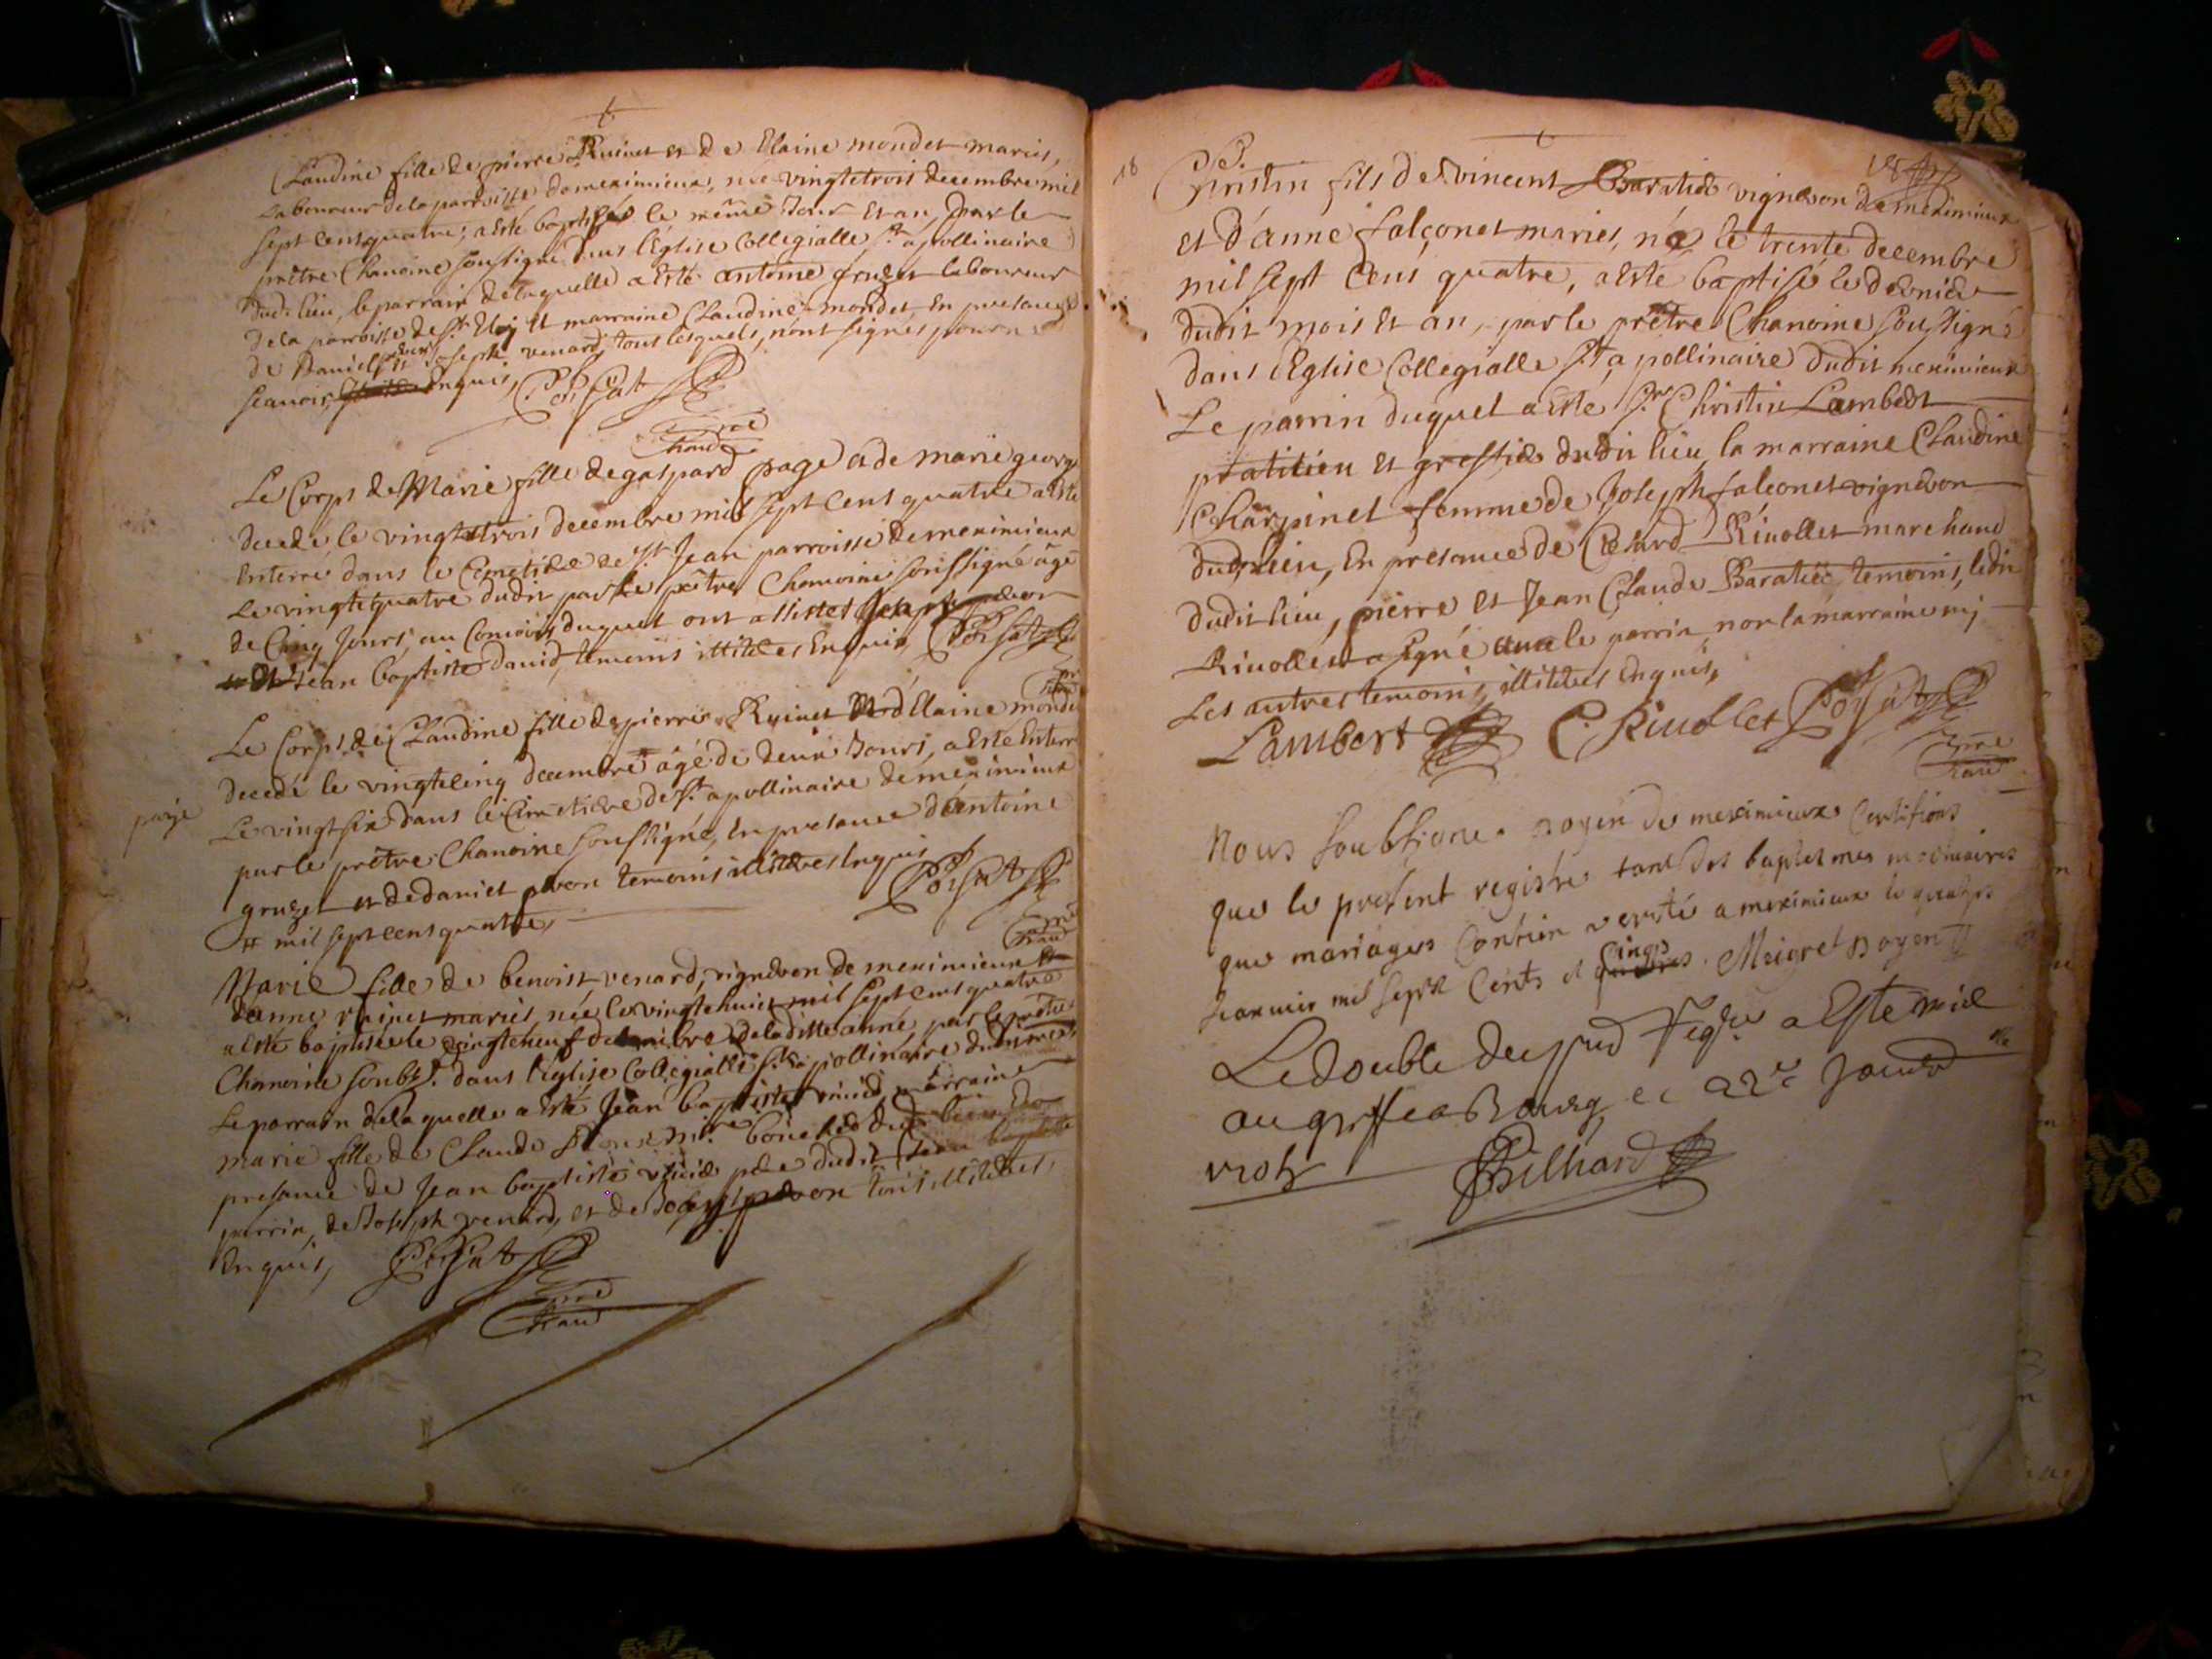 Claudine fille de pierre Ruinet et de Elaine mondet mariés,
laboureur de la parroisse de meximieux, née vingtetrois decembre mil
sept cent quatre, a esté baptisée le même jour et an, par le
prêtre Chanoine soussigné dans l'Eglise Collegialle st apollinaire
dud. lieu, le parrain de laquelle a esté antoine gruzet laboureur
de la parroisse de st Eloy et marraine Claudine mondet, en presance
de Daniel pevon et Joseph venard, tous lesquels, n'ont signés pour ne
scavoir, enquis, Poisat
pre
chane
Le Corps de Marie fille de gaspard page et de marie george
decedé le vingtetrois decembre mil sept cent quatre a esté
enterré dans le Cimetiere de st Jean parroisse de meximieux
le vingtequatre dudit par le prêtre Chanoine soussigné âgé
de Cinq jours, au Convois duquel ont assistés Joseph pevon
et Jean baptiste david, temoins illiteres enquis, Poisat
pre
chane
Le Corps de Claudine fille de pierre Ruinet et d'Elaine mondet
decedé le vingtecinq decembre âgé de deux jours, a esté enterré
le vingt six dans le Cimetiere de st apollinaire de meximieux
par le prêtre Chanoine soussigné, en presance d'antoine
gruzet et de daniel pevon temoins illiteres enquis
# mil sept cens quatre, Poisat
pre
chane
Marie fille de benoist venard, vigneron de meximieux et
d'anne ruinet mariés, née le vingtehuict mil sept cens quatre
a esté baptisée le vingteneuf decembre de laditte anné, par le prêtre
Chanoine soubs.é dans l'Eglise Collegialle st apollinaire
Le parrain de laquelle a esté Jean baptiste marraine
marie fille de Claude boucher dud. lieu
presance de Jean baptiste pere dudit
parrin, de Joseph venard, et de Joseph pevon tous illiteres
enquis, Poisat
pre
chane
18
18
Christin fils de vincent Baratier vigneron de meximieux
et d'anne falconet mariés, né le trente decembre
mil sept cens quatre, a esté baptisé le dernier
dudit mois et an, par le prêtre Chanoine soussigné
dans l'Eglise Collegialle st apollinaire dudit meximieux
Le parrin duquel a esté sr Christin Lambert
pratitien et greffier dudit lieu, la marraine Claudine
Charpinel femme de Joseph falconet vigneron
dudit lieu, en presance de Cesard Rivollet marchand
dudit lieu, pierre et Jean Claude Baratier temoins, ledit
Rivollet a signé avec le parrin, non la marraine nj
Les autres temoins, illiteres enquis,
Lambert C. Rivollet Poisat
pre
chane
Nous soubsigne doyen de meximieux Certifions
que le present registre tant des baptesmes mortuaires
que mariages Contien verité a meximieux le quatre
janvier mil sept Cents et cinq Meigret doyen
Le double du pnt Regre a Esté mis
au greffe a Bourg le 22e Janvr
1705
Bilhard